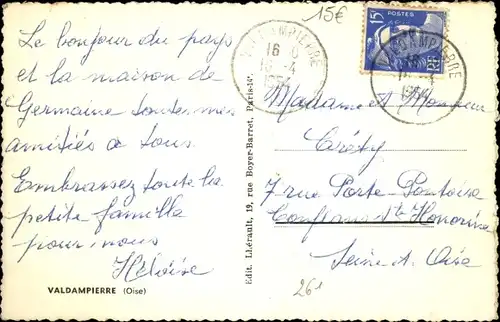 Le bonjour du pays
et la maison de
Germaine toutes mes
amitiés à tous.
Embrassez toute la
petite famille
pour nous
Héloïse
VALDAMPIERRE (Oise)
Edit. Lhérault, 19, rue Boyer-Barret, Paris-14e
15€
VALDAMPIERRE
16
4
1954
15F
POSTES
RF
VALDAMPIERRE
Madame et Monsieur
Créty
7 rue Porte-Pontoise
Conflans Ste Honorine
Seine et Oise
26